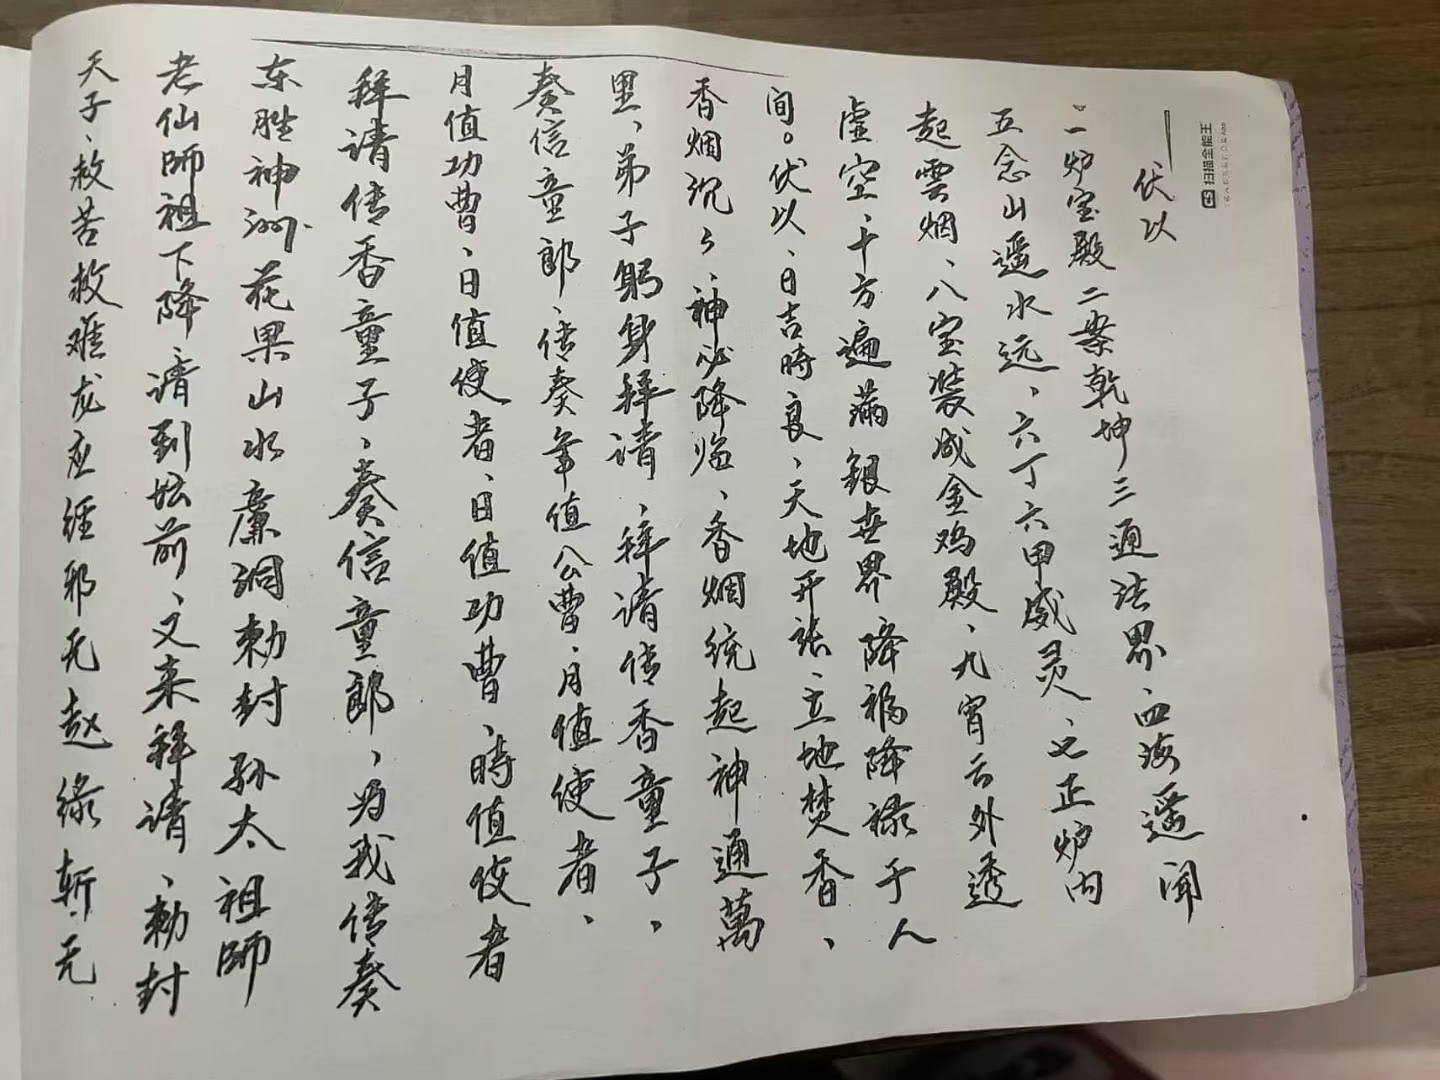 扫描全能王
伏以
一炉宝殿二案乾坤三通法界、四海遥闻
五念山遥水远、六丁六甲威灵、七正炉内
起雲烟、八宝装成金鸡殿、九宵云外透
虚空、十方遍满银世界降祸降禄于人
间。伏以、日吉時良、天地开张、立地焚香、
香烟沉々、神必降临、香烟统起神通萬
里、弟子躬身拜请、拜请传香童子、
奏信童郎、传奏年值公曹、月值使者、
月值功曹、日值使者、日值功曹、時值使者
拜请传香童子、奏信童郎、为我传奏
东胜神洲花果山水廉洞勅封孙太祖師
老仙師祖下降、请到坛前、又来拜请、勅封
天子、救苦救难龙应经邪无赵缘斩无